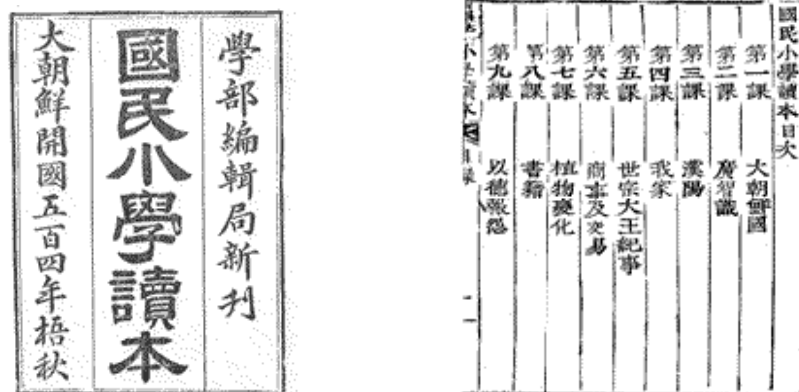 學部編輯局新刊
國民小學讀本
大朝鮮開國五百四年梧秋
國民小學讀本目次
第一課 大朝鮮國
第二課 廣智識
第三課 漢陽
第四課 我家
第五課 世宗大王紀事
第六課 商事及交易
第七課 植物變化
第八課 書籍
第九課 以德報怨
小學讀本
目錄